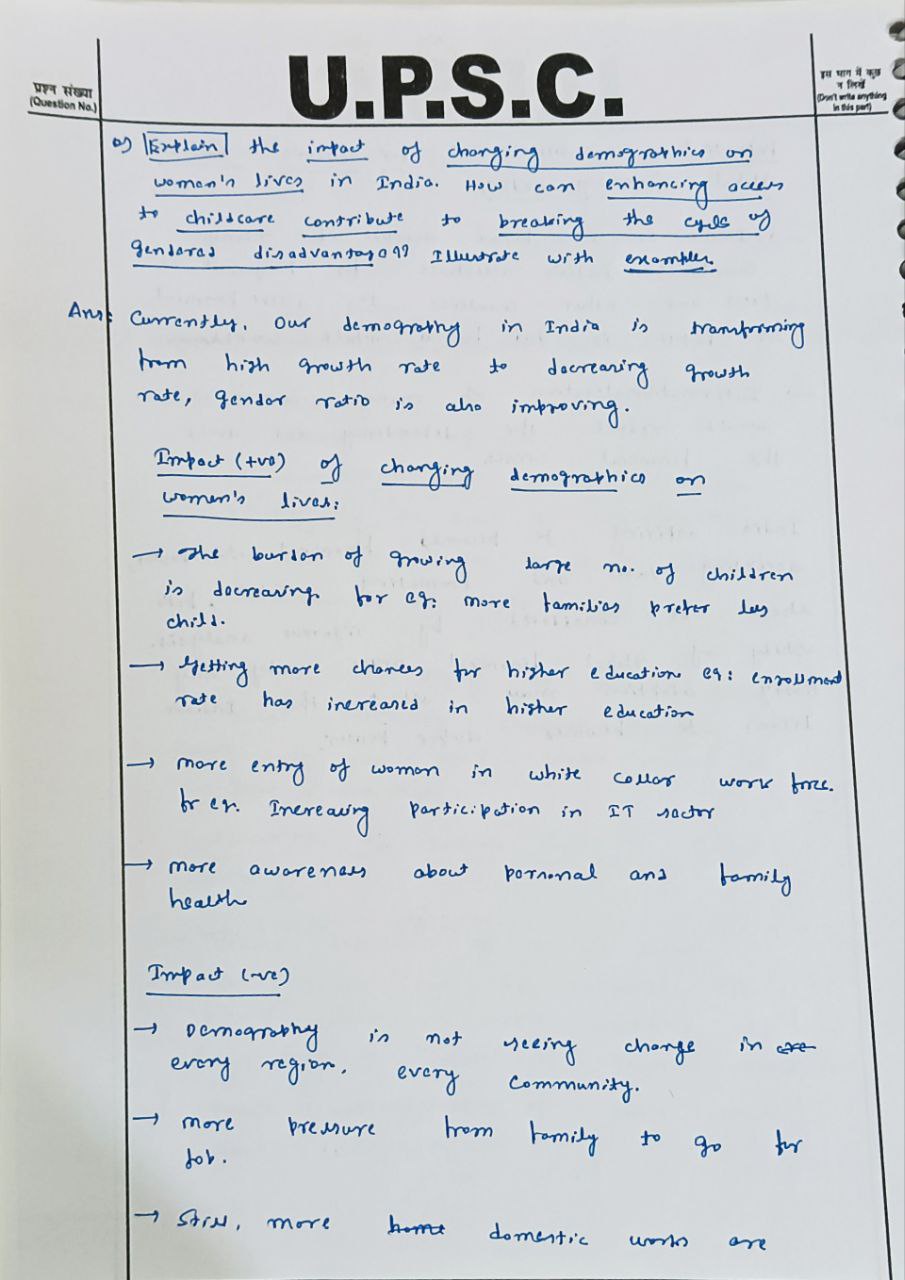 प्रश्न संख्या
(Question No.)
U.P.S.C.
इस भाग में कुछ
न लिखें
(Don't write anything
in this part)
Q) Explain the impact of changing demographics on
women's lives in India. How can enhancing access
to childcare contribute to breaking the cycle of
gendered disadvantage? Illustrate with examples.
Ans: Currently, Our demography in India is transforming
from high growth rate to decreasing growth
rate, gender ratio is also improving.
Impact (+ve) of changing demographics on
women's lives:
→ The burden of growing large no. of children
is decreasing. for eg: more families prefer less
child.
→ Getting more chances for higher education eg: enrollment
rate has increased in higher education
→ more entry of woman in white collar work force.
for eg. Increasing participation in IT sector
→ more awareness about personal and family
health
Impact (-ve)
→ Demography is not seeing change in
every region, every community.
→ more pressure from family to go for
Job.
→ Still, more home domestic works are